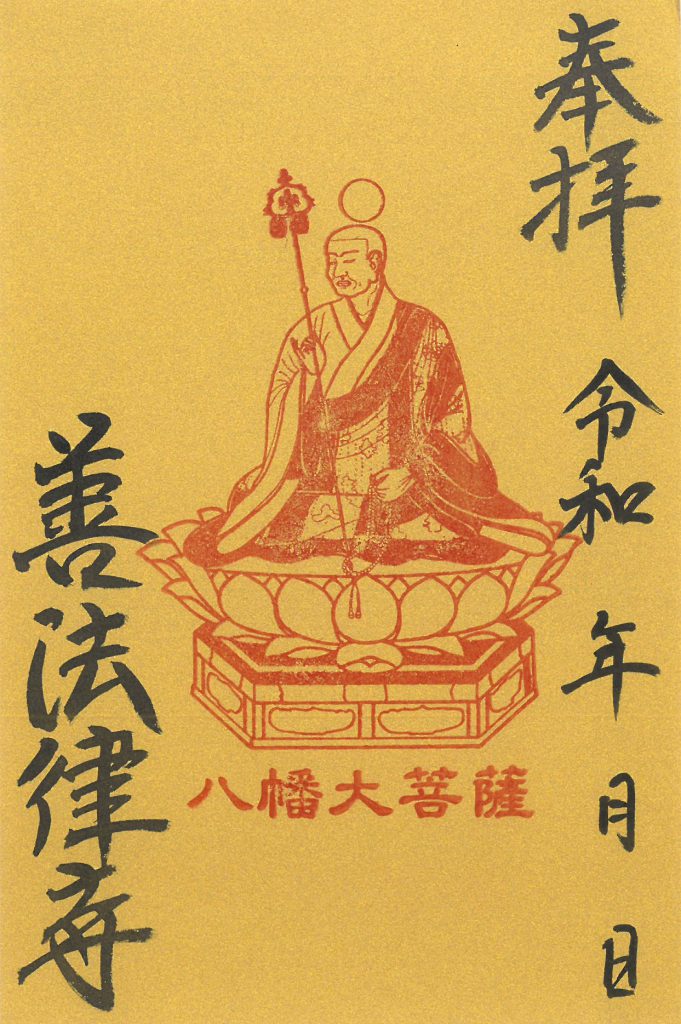 奉拝
令和 年 月 日
八幡大菩薩
善法律寺